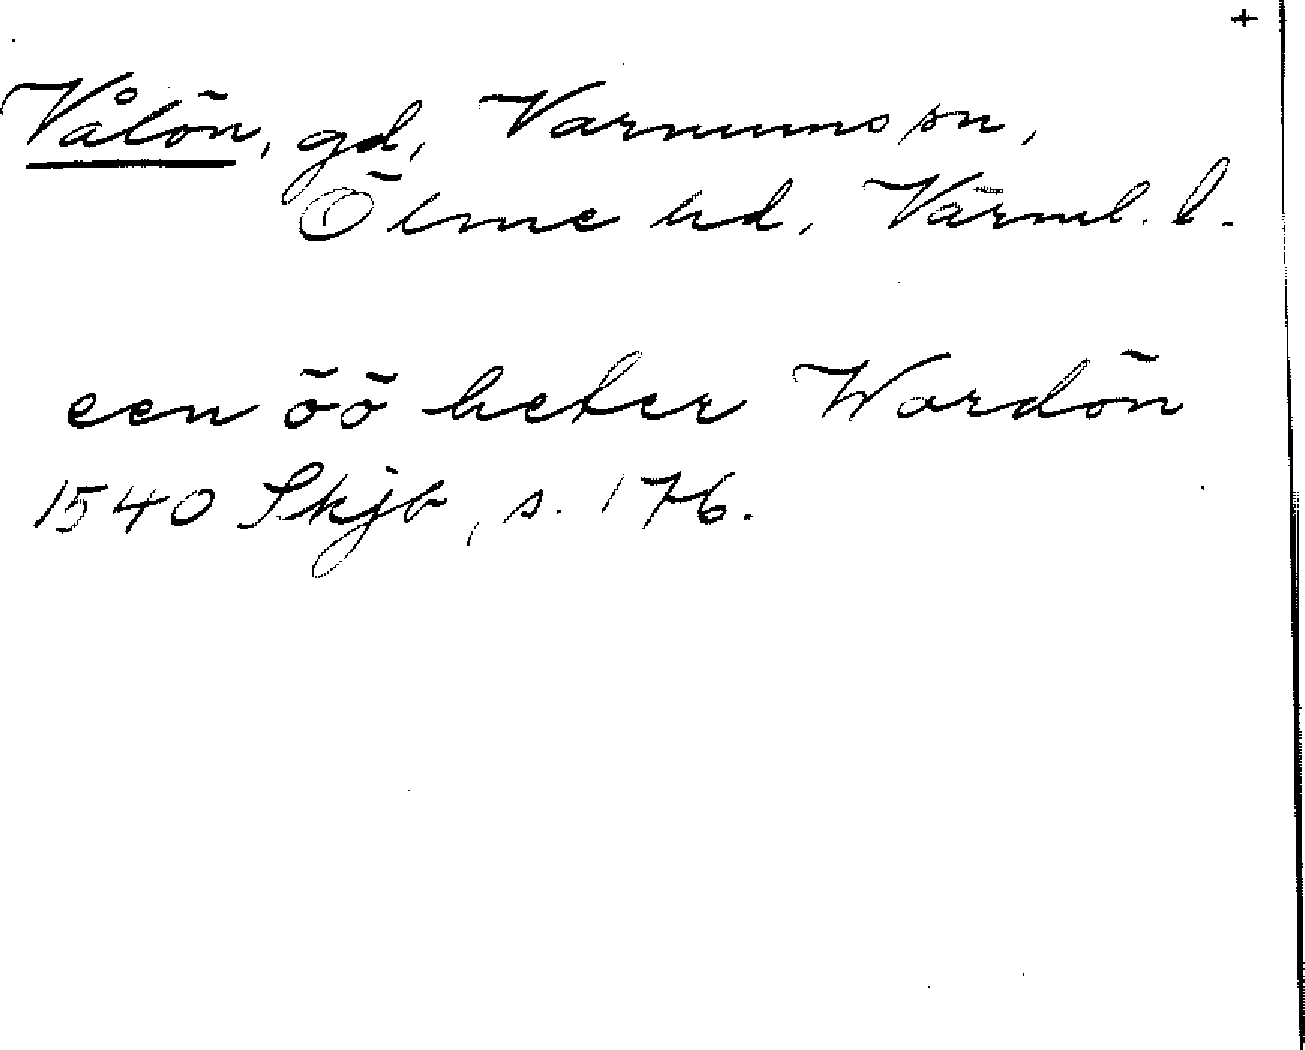 +
Vålön, gd, Varnums sn,
Ölme hd, Värml. l.
een öö heter Wardön
1540 Skjb, s. 176.